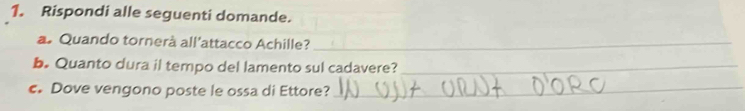 1. Rispondi alle seguenti domande.
a. Quando tornerà all'attacco Achille?
b. Quanto dura il tempo del lamento sul cadavere?
c. Dove vengono poste le ossa di Ettore? IN D'ORO